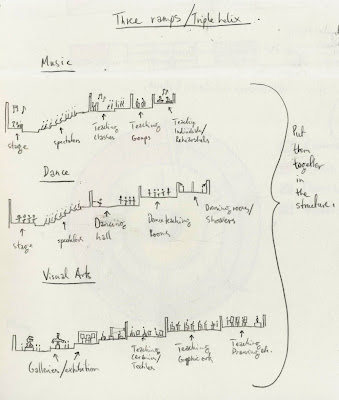 Three ramps/Triple helix.
Music
stage
spectators
Teaching
classes
Teaching
Groups
Teaching
Individuals/
Rehearsals
Dance
stage
spectators
Dancing
hall
Dance teaching
rooms
Dressing rooms/
Showers
Visual Arts
Galleries/exhibition
Teaching
Ceramics/
Textiles
Teaching
Graphic
Teaching
Drawing
Put
them
together
in
the
structure.